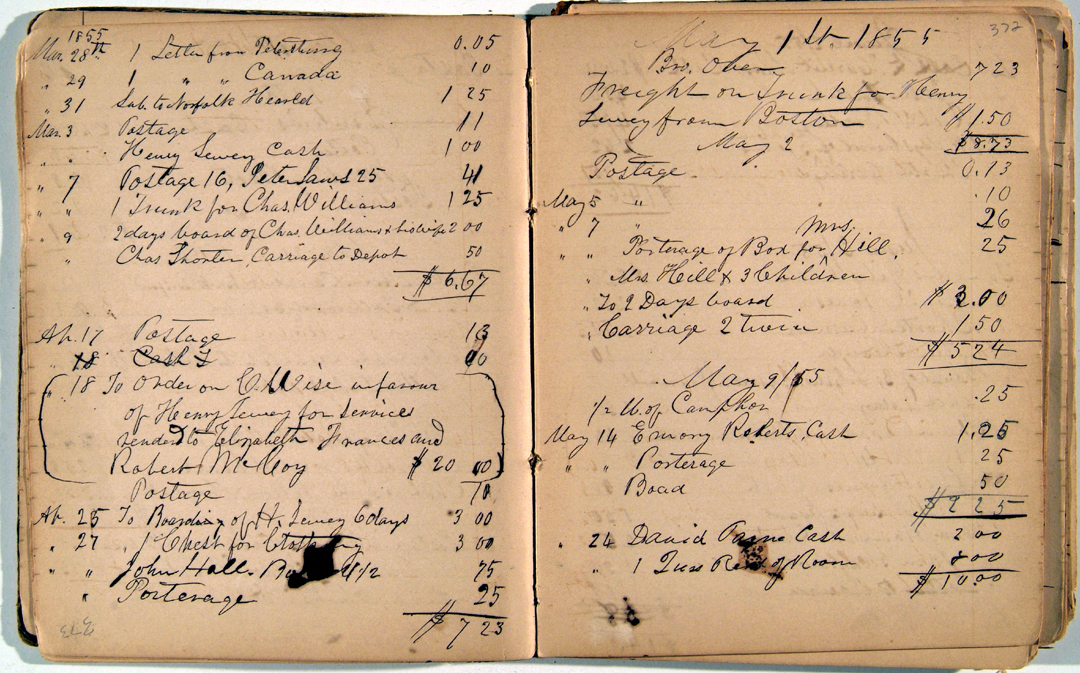 1855
Mar. 28th 1 Letter from Petersburg 0.05
" 29 1 " " Canada 10
" 31 Sub. to Norfolk Hearld 1 25
Mar. 3 Postage 11
" " Henry Lewey Cash 1 00
" 7 Postage 16, Peter Laws 25 41
" " 1 Trunk for Chas. Williams 1 25
" 9 2 days board of Chas. Williams & his wife 2 00
" Chas Thorter Carriage to Depot 50
$ 6.67
Ap. 17 Postage 13
" 18 Cash 00
" 18 To order on C. Wise in favour
of Henry Lewey for services
rended to Elizabeth Frances and
Robert McCoy $ 20 00
Postage 10
Ap. 25 To Boarding of H. Lewey 6 days 3 00
" 27 1 Chest for Clothing 3 00
" " John Hall. 4 1/2 75
" Porterage 25
$ 7 23
373
372
May 1st. 1855
Bro. Over 7 23
Freight on Trunk for Henry
Lewey from Boston $1.50
May 2 $8.73
Postage 0.13
May 5 " .10
" 7 " 26
Mrs.
" " Porterage of Box for Hill. 25
" Mrs. Hill & 3 Children
" To 2 Days board $ 3.00
" Carriage 2 twin 1 50
$ 5 24
May 9/55
1/2 U. of Camphor .25
May 14 Emory Roberts, Cash 1.25
" " Porterage 25
Boad 50
$ 2 25
" 24 David Cash 2 00
" 1 Rent of Room 8 00
$ 10.00